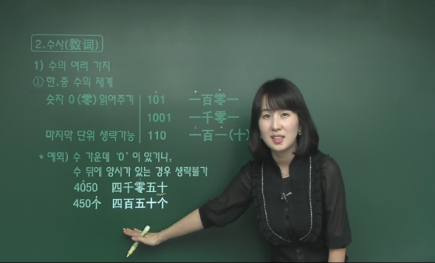 2.수사(数词)
1) 수의 여러 가지
①한.중 수의 체계
숫자 0 (零) 읽어주기 101 一百零一
1001 一千零一
마지막 단위 생략가능 110 一百一(十)
* 예외) 수 가운데 '0' 이 있거나,
수 뒤에 양사가 있는 경우 생략불가
4050 四千零五十
450个 四百五十个